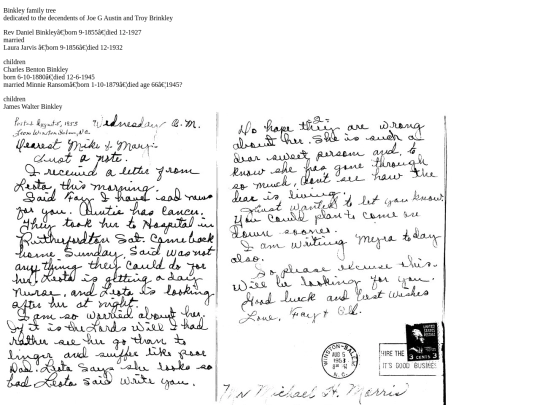 Binkley family tree
dedicated to the decendents of Joe G Austin and Troy Brinkley
Rev Daniel Binkleyâ€¦born 9-1855â€¦died 12-1927
married
Laura Jarvis â€¦born 9-1856â€¦died 12-1932
children
Charles Benton Binkley
born 6-10-1880â€¦died 12-6-1945
married Minnie Ransomâ€¦born 1-10-1879â€¦died age 66â€¦1945?
children
James Walter Binkley
Wednesday A.M.
from Winston Salem, N.C.
Dearest Mike & Mary:
Just a note.
I received a letter from
Lesta, this morning.
Said Fay I have sad news
for you. Auntie has cancer.
They took her to Hospital in
Rutherfordton Sat. Came back
home Sunday, Said was not
any thing they could do for
her. Lesta is getting a day
Nurse, and Lesta is looking
after her at night.
I am so worried about her.
If it is the Lords Will I had
rather see her go than to
linger and suffer like poor
Dad. Lesta Says she looks so
bad Lesta said write you.
-2-
Do hope they are wrong
about her. She is such a
dear sweet person and to
know she has gone through
so much, dont see how the
dear is living.
Just wanted to let you know
You could plan to come on
down sooner.
I am writing Myra today
also.
So please excuse this.
Will be looking for you.
Good luck and best wishes
Love, Fay &
WINSTON-SALEM
AUG 5
1953
N.C.
HIRE THE
IT'S GOOD BUSINESS
3 CENTS 3
Mr Michael H. Morris